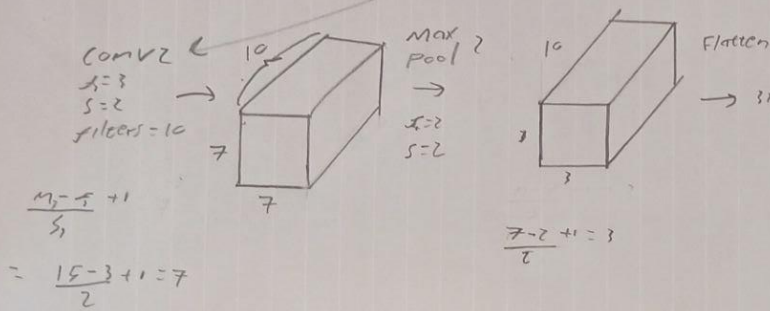 Conv2
f=3
s=2
filters=10
10
7
7
Max
Pool 2
f=2
s=2
10
3
3
Flatten
n-f +1
s
= 15-3 +1 = 7
2
7-2 +1 = 3
2